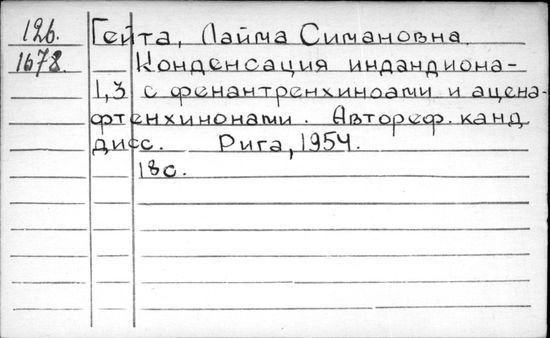 126. Гейта, Лайма Симановна.
1678. Конденсация индандиона-
1,3 с фенантренхиноами и ацена-
фтенхинонами. Автореф. канд
дисс. Рига, 1954.
18с.